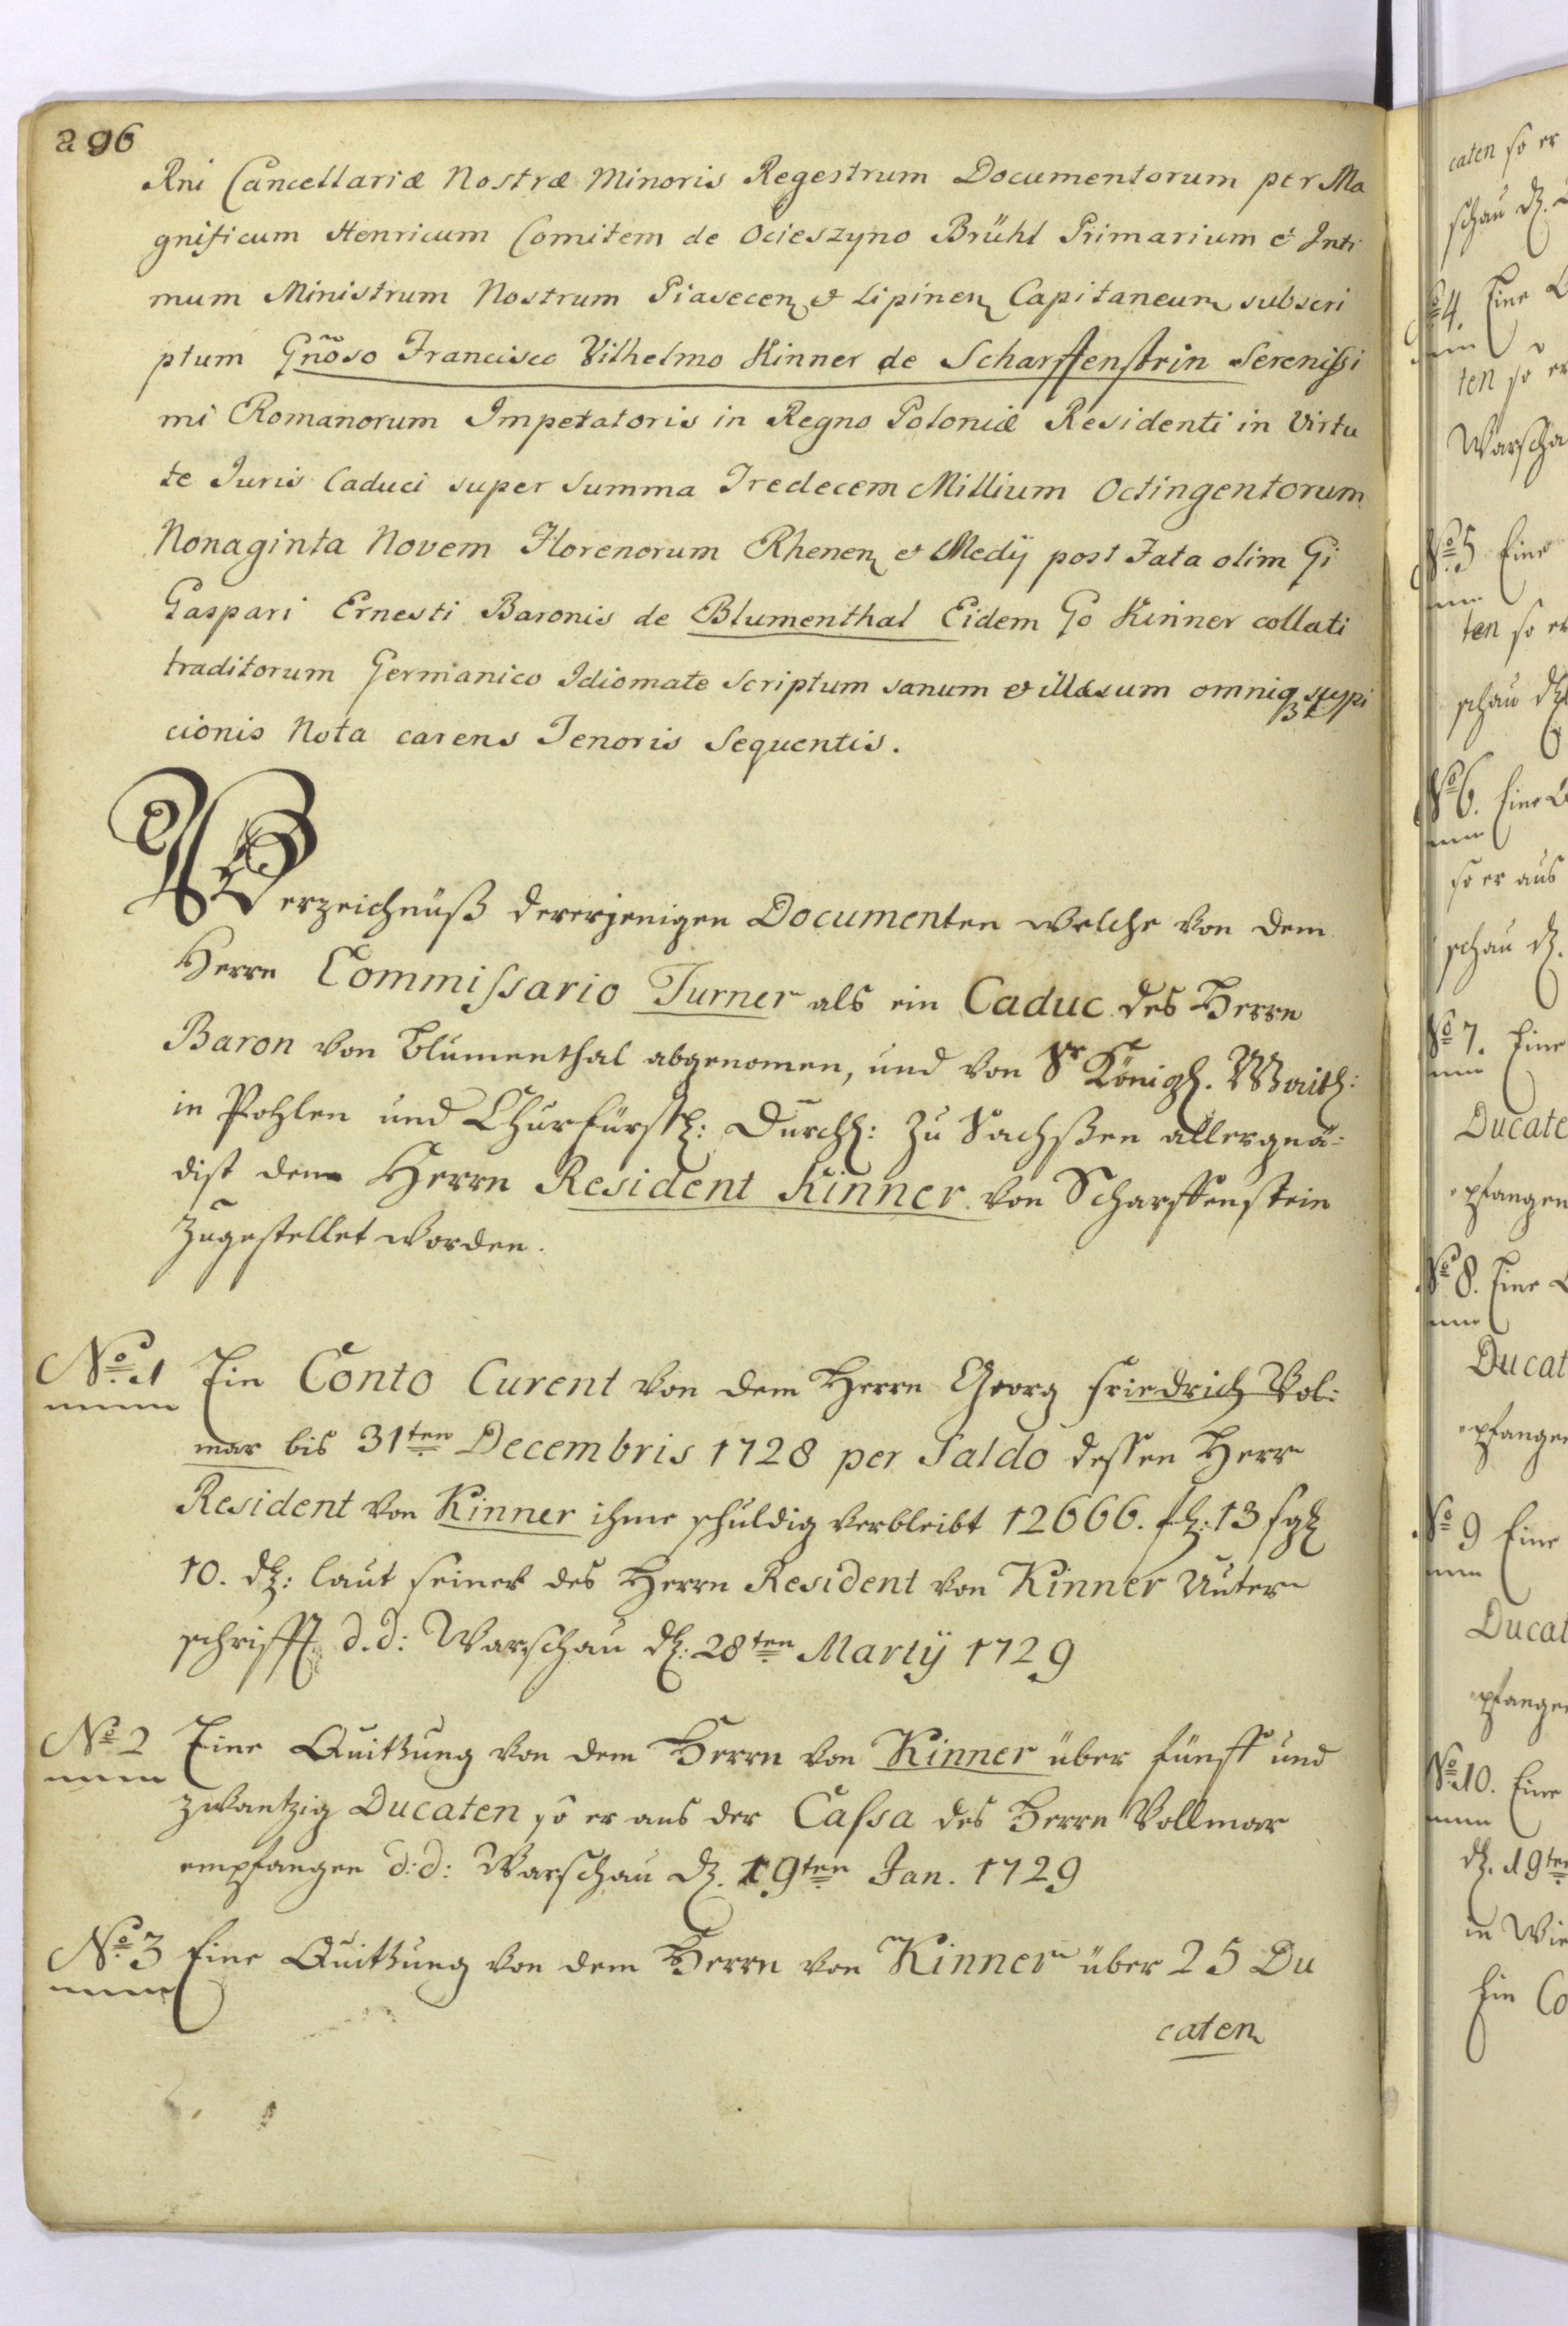 296
Rni Cancellariæ Nostræ Minoris Regestrum Documentorum per Ma
gnificum Henricum Comitem de Ocieszyno Brühl Primarium et Inti
mum Ministrum Nostrum Piasecen et Lipinen Capitaneum subscri
ptum Gnõso Francisco Vilhelmo Kinner de Scharffenstein Serenissi
mi Romanorum Impetatoris in Regno Poloniæ Residenti in Virtu
te Juris Caduci super Summa Tredecem Millium Octingentorum
Nonaginta Novem Florenorum Rhenen et Medij post Fata olim Gi
Gaspari Ernesti Baronis de Blumenthal Eidem Go Kinner collati
traditorum Germanico Idiomate Scriptum sanum et illæsum omniq suspi
cionis Nota carens Tenoris Sequentis.
Verzeichnüß dererjenigen Documenten welche von dem
Herrn Commissario Turner als ein Caduc des Herrn
Baron von Blumenthal abgenomen, und von Sr Königl. Maith:
in Pohlen und Churfürstl: Durchl: zu Sachßen allergnä-
dist dem Herrn Resident Kinner von Scharffenstein
zugestellet worden.
No. 1 Ein Conto Curent von dem Herrn Georg Friedrich Vol-
mar bis 31ten Decembris 1728 per Saldo dessen Herr
Resident von Kinner ihme schuldig verbleibt 12666. fl: 13 sgl
10. dl: laut seiner des Herrn Resident von Kinner Unter
schrifft d.d: Warschau d. 28ten Martij 1729
No 2 Eine Quittung von dem Herrn von Kinner über fünff und
zwantzig Ducaten so er aus der Cassa des Herrn Vollmar
empfangen d:d: Warschau d. 19ten Jan. 1729
No 3 Eine Quittung von dem Herrn von Kinner über 25 Du
caten
caten so er
schau d.
4. Eine
ten so er
Warscha
No 5 Eine
ten so er
schau
No 6. Eine
so er aus
schau d.
No 7. Eine
Ducate
pfangen
No 8. Eine
Ducat
pfangen
No 9 Eine
Ducat
pfangen
No 10. Eine
d. 19ten
in Wie
Ein Co